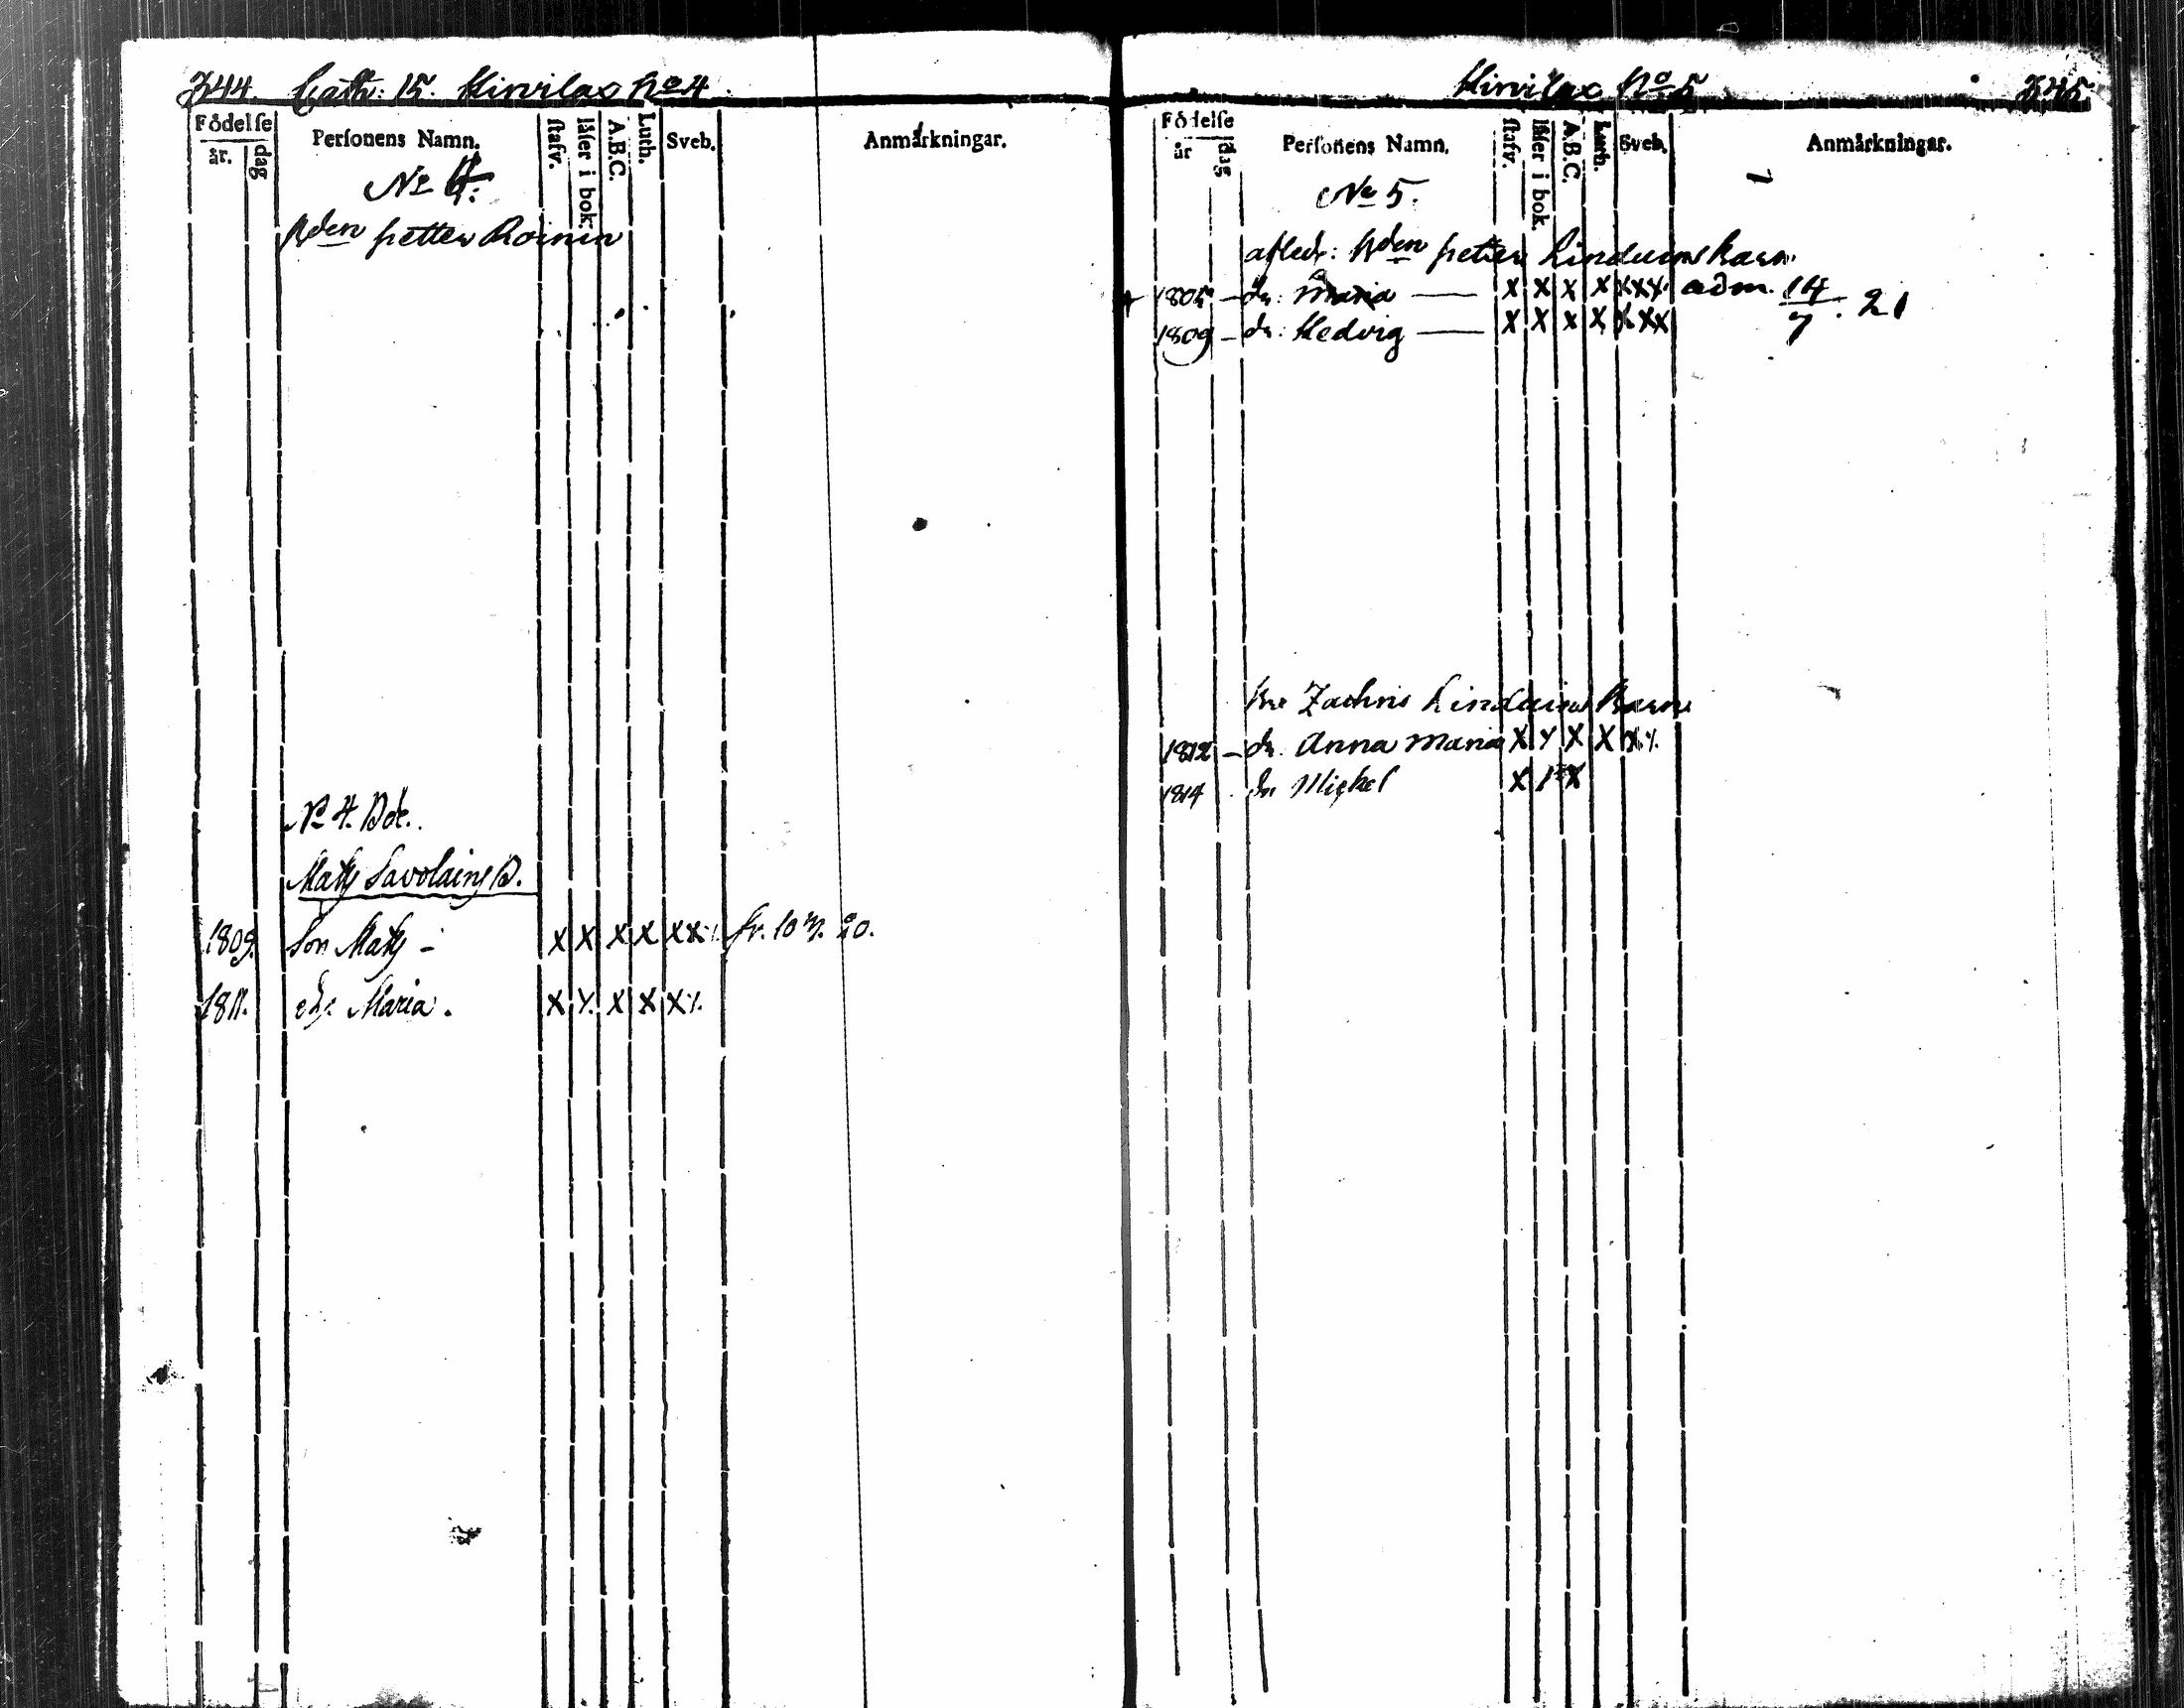 344. Cath: 15. Kinnilax No 4.
Födelse
år. dag
Perſonens Namn.
ſtafv.
låſer i bok.
A.B.C.
Luth.
Sveb.
Anmårkningar.
No 4.
Bden petter Roinin
No 4. Bde.
Matts Savolains B.
1809. Son Matts - X X X X XX fr. 10 20.
1811. dr Maria. X X X X X
Kinnilax No 5 345
Födelse
år dag
Perſonens Namn.
ſtafv.
låſer i bok.
A.B.C.
Luth.
Sveb.
Anmårkningar.
No 5.
afled: Bden petter Barn
1805 - dr: Maria — X X X X XXX adm. 14/7. 21
1809 - dr: Hedvig — X X X X XXX
Zachris Barn
1812 - dr. Anna Maria X X X X X
1814 Mickel X X